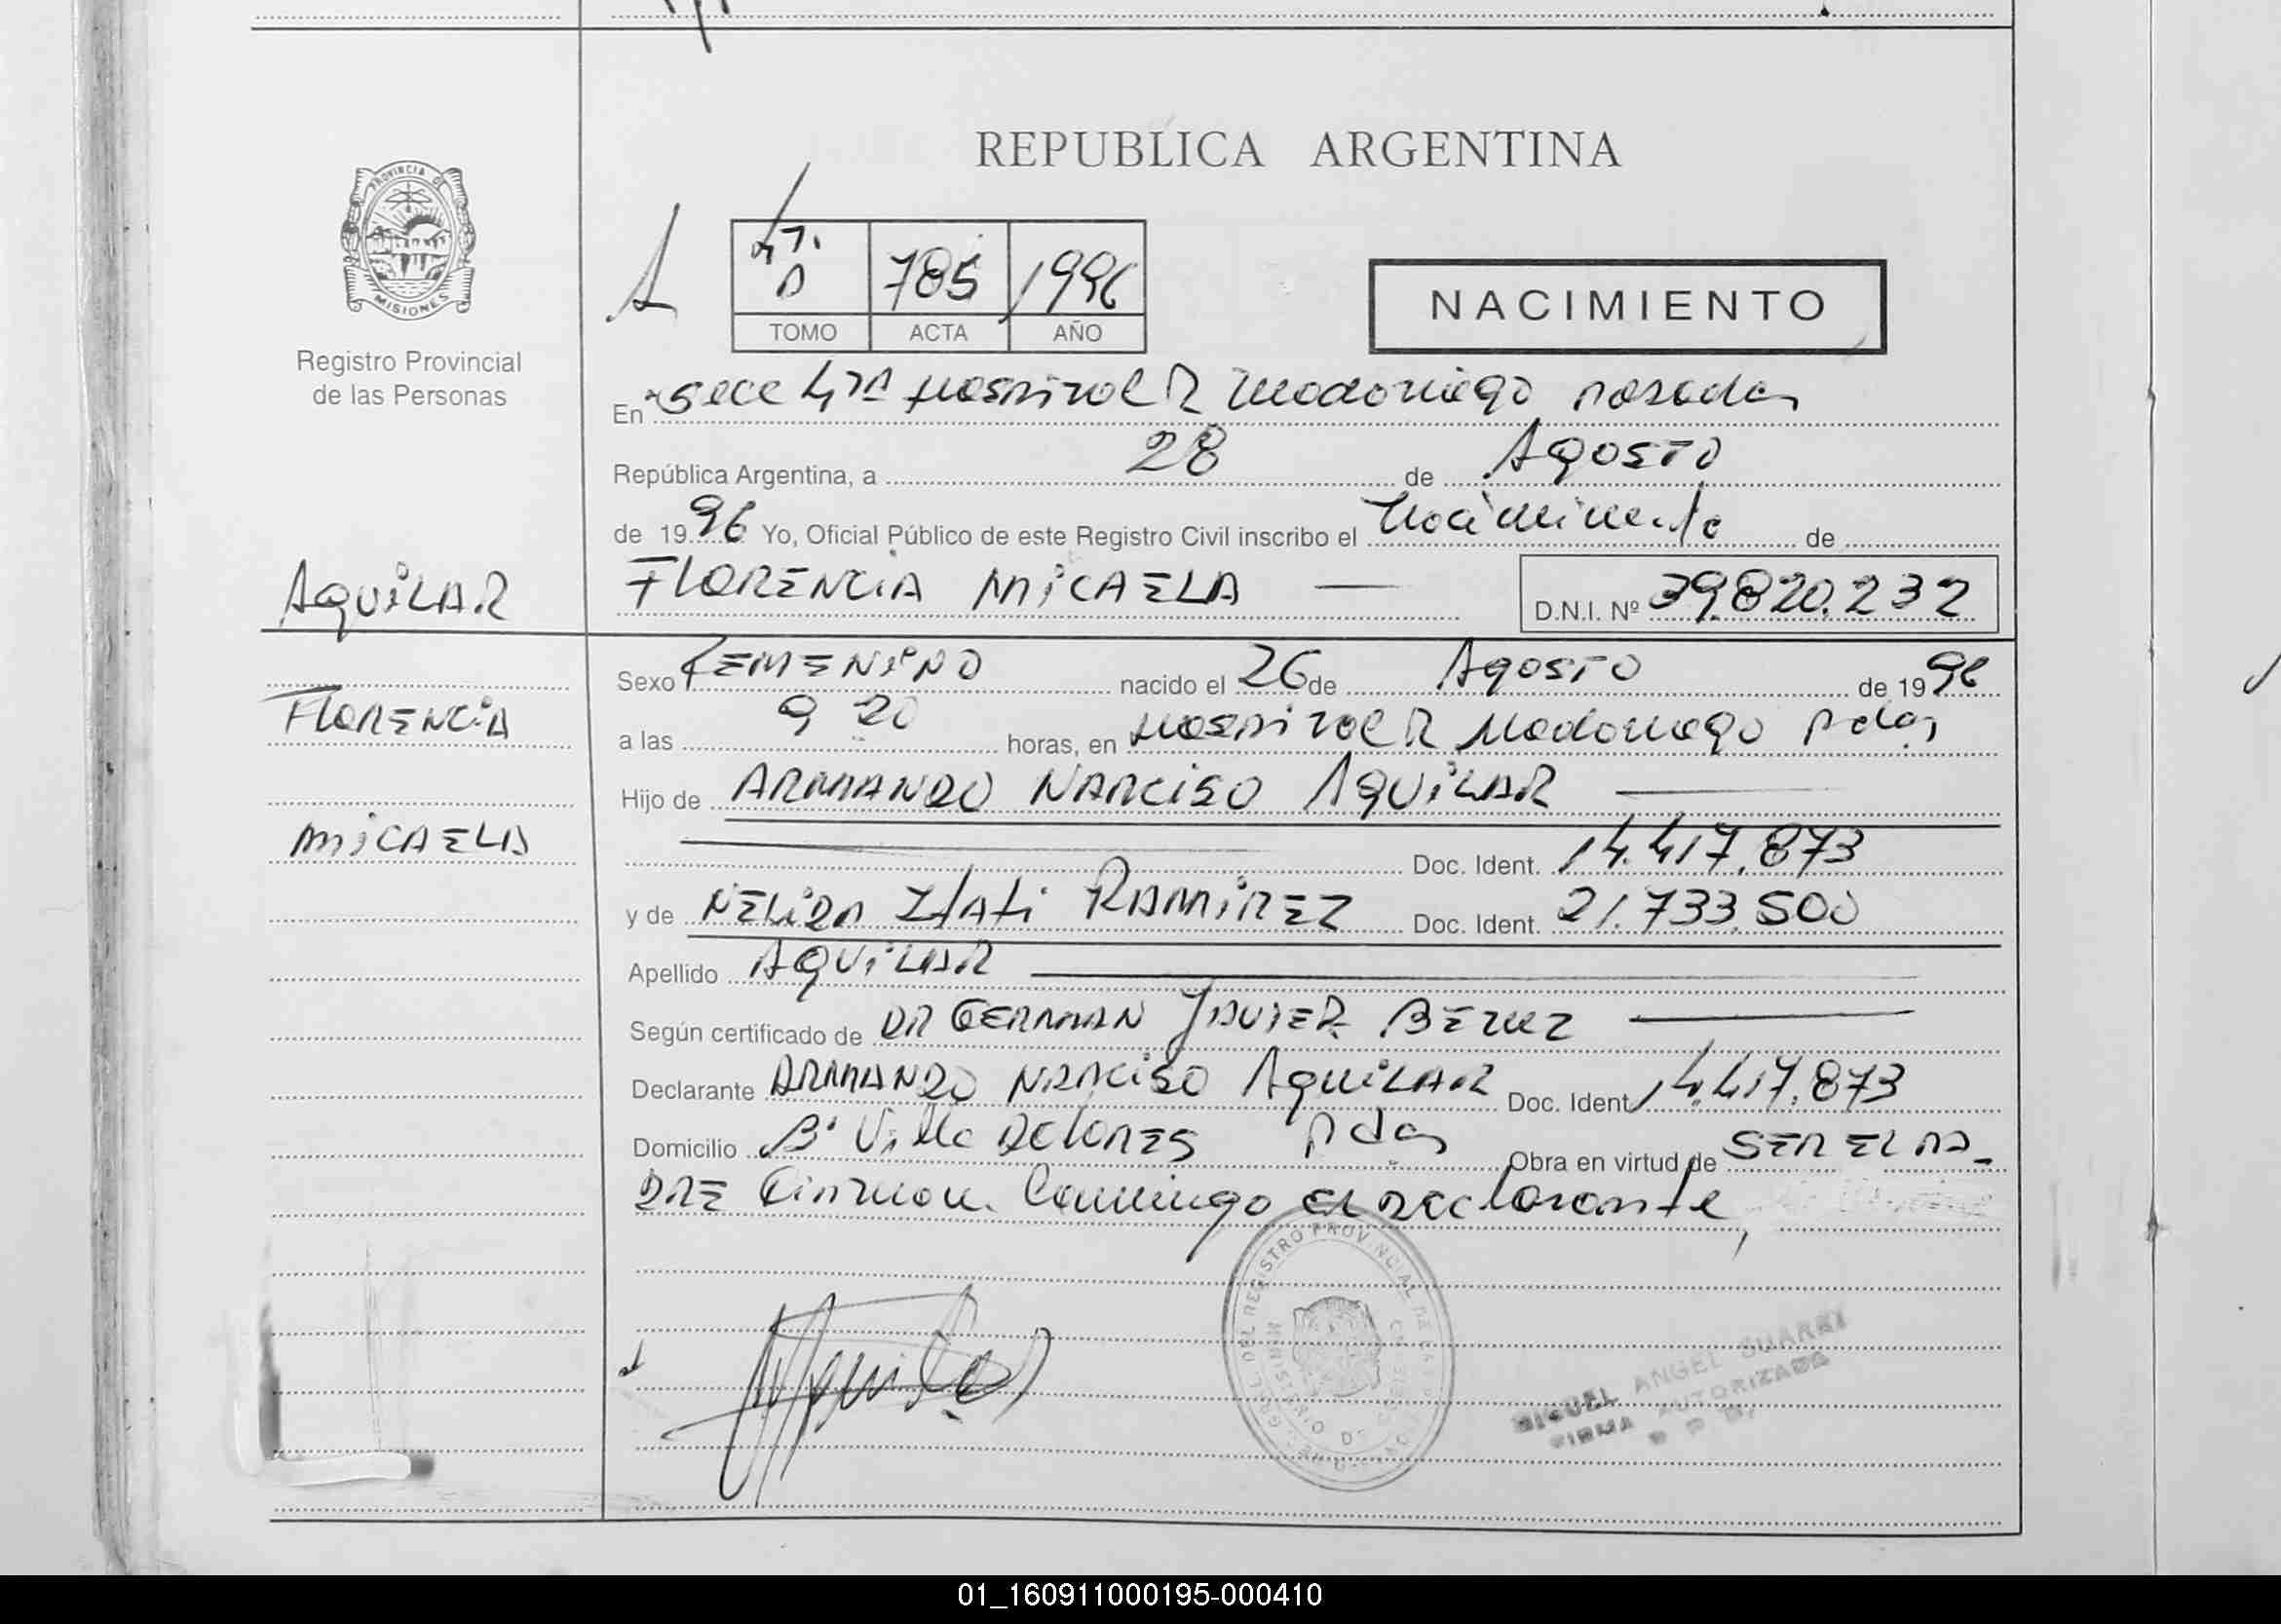 REPUBLICA ARGENTINA
PROVINCIA DE
MISIONES
Registro Provincial
de las Personas
785 1996
TOMO ACTA AÑO
NACIMIENTO
En Secc 4ta Hospital R Madariaga Posadas
República Argentina, a 28 de Agosto
de 1996 Yo, Oficial Público de este Registro Civil inscribo el Nacimiento de
AGUILAR
FLORENCIA MICAELA
D.N.I. Nº 39.820.232
Sexo FEMENINO nacido el 26 de Agosto de 1996
FLORENCIA
a las 9 20 horas, en Hospital R Madariaga Pdas
Hijo de ARMANDO NARCISO AGUILAR
MICAELA
Doc. Ident. 14.417.873
y de NELIDA Itati RAMIREZ Doc. Ident. 21.733.500
Apellido AGUILAR
Según certificado de DR GERMAN JAVIER
Declarante ARMANDO NARCISO AGUILAR Doc. Ident. 14.417.873
Domicilio Bº Villa DOLORES Pdas Obra en virtud de SER EL PA-
DRE Firman Conmigo el declarante,
MIGUEL ANGEL SUAREZ
FIRMA AUTORIZADA
01_160911000195-000410